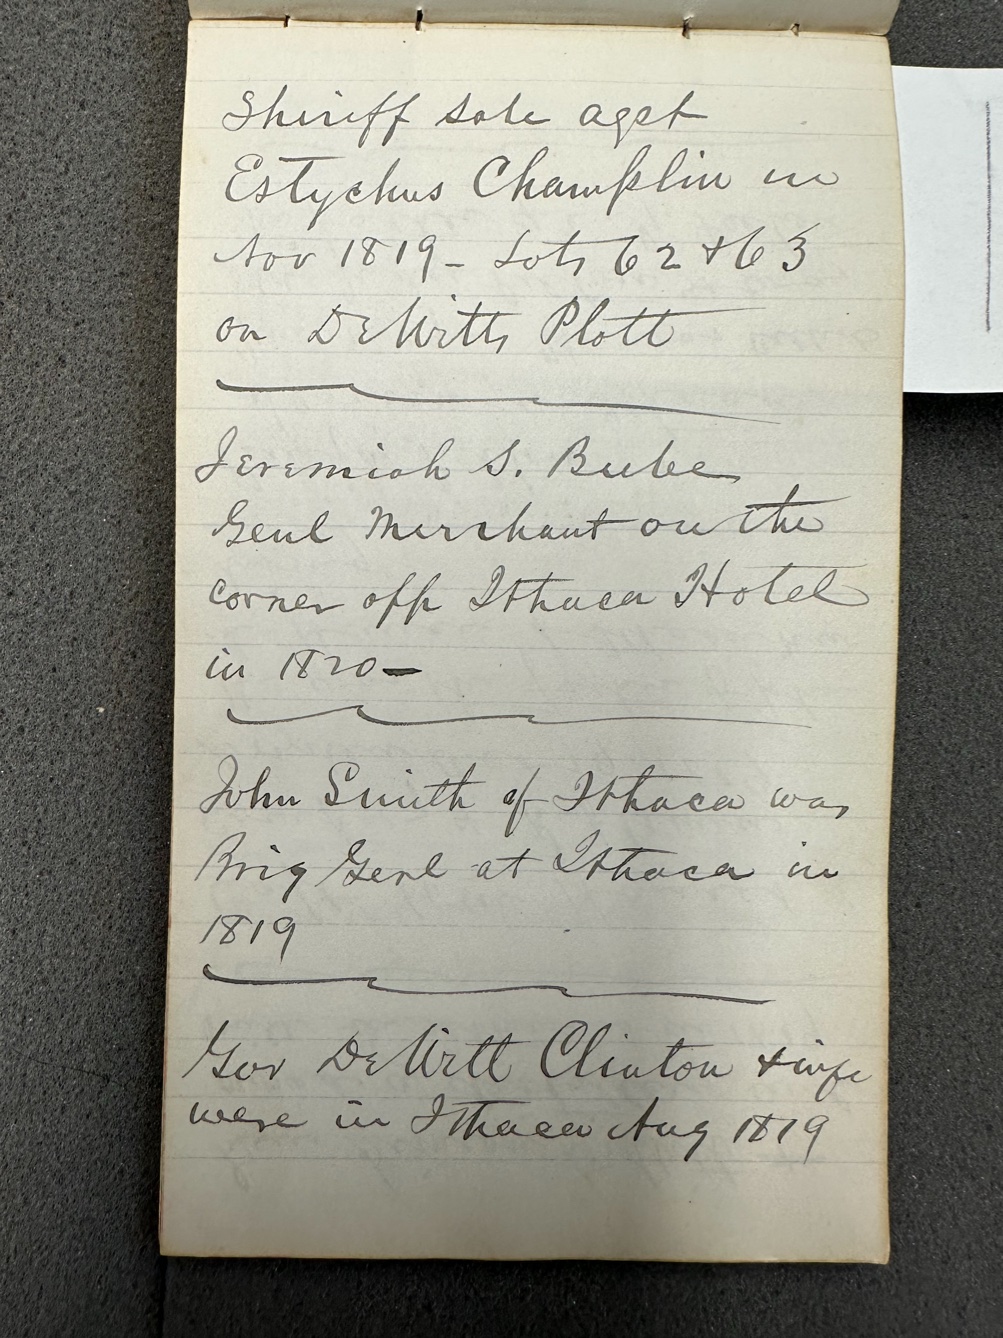 Sheriff sale agst
Estychus Champlin in
Nov 1819 - Lots 62 & 63
on DeWitts Plott
Jeremiah S. Beebe
Genl Merchant on the
corner opp Ithaca Hotel
in 1820 -
John Smith of Ithaca was
Brig Genl at Ithaca in
1819
Gov DeWitt Clinton & wife
were in Ithaca Aug 1819